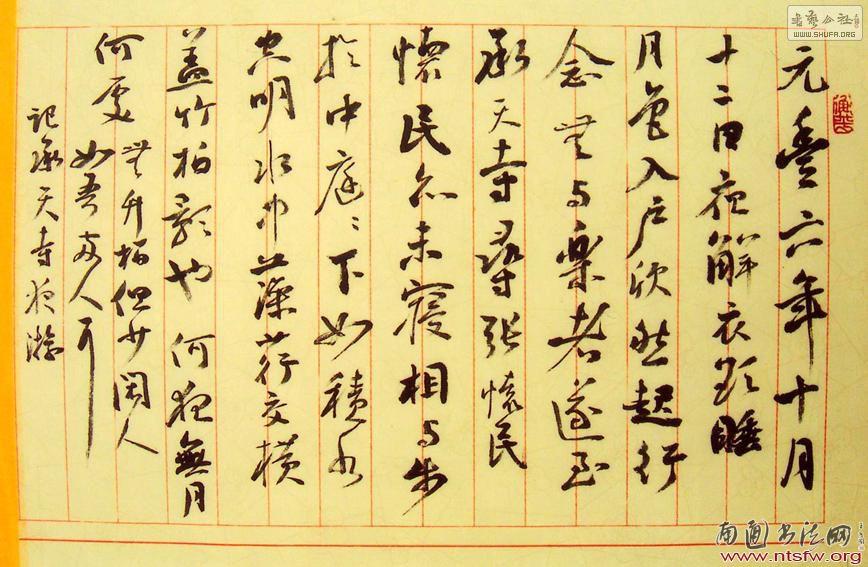 元豐六年十月
十二日夜解衣欲睡
月色入户欣然起行
念无与樂者遂至
承天寺尋張懷民
懷民亦未寢相与步
於中庭〻下如積水
空明水中藻荇交横
盖竹柏影也何夜無月
何處无竹柏但少闲人
如吾两人耳
记承天寺夜游
書藝公社
WWW.SHUFA.ORG
南通书法网
www.ntsfw.org